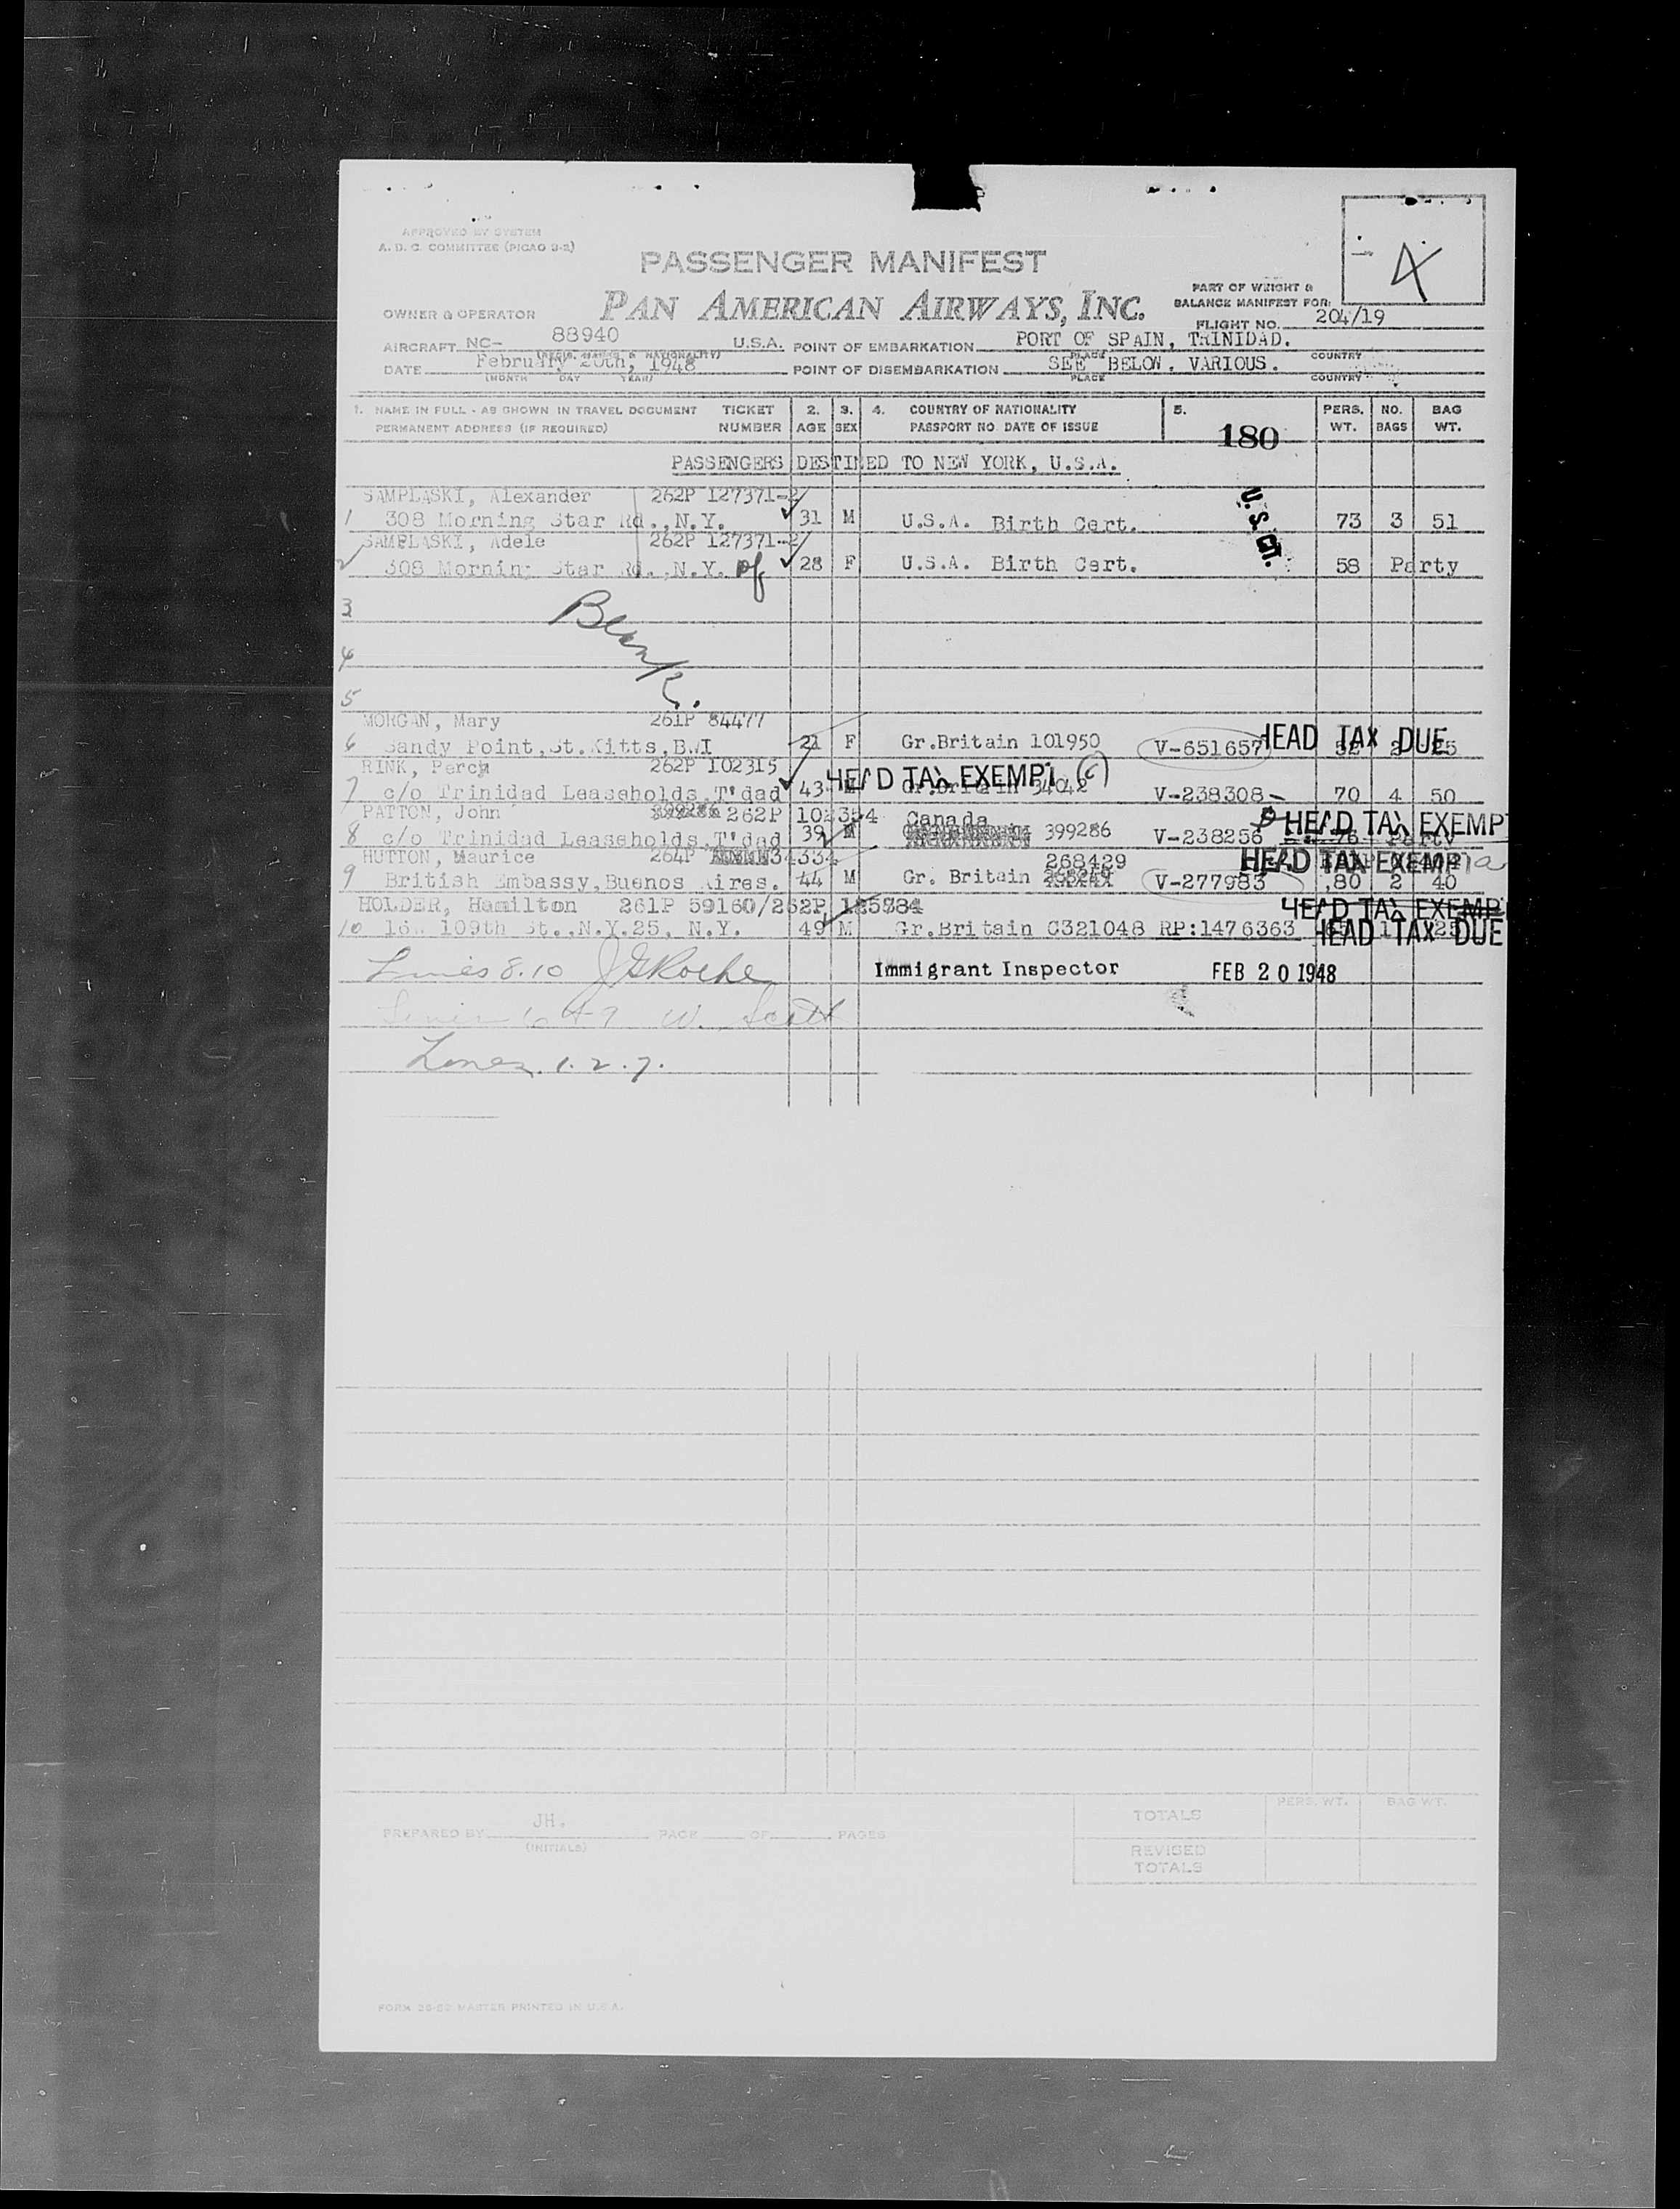 APPROVED BY SYSTEM
A. D. C. COMMITTEE (PICAO 2-2)
PASSENGER MANIFEST
4
PAN AMERICAN AIRWAYS, INC.
PART OF WEIGHT &
BALANCE MANIFEST FOR:
OWNER & OPERATOR
FLIGHT NO. 204/19
AIRCRAFT NC- 88940 U.S.A. POINT OF EMBARKATION PORT OF SPAIN, TRINIDAD.
(REGIS. MARKS & NATIONALITY) PLACE COUNTRY
DATE February 20th, 1948 POINT OF DISEMBARKATION SEE BELOW. VARIOUS.
(MONTH DAY YEAR) PLACE COUNTRY
1. NAME IN FULL - AS SHOWN IN TRAVEL DOCUMENT TICKET 2. 3. 4. COUNTRY OF NATIONALITY 5. PERS. NO. BAG
PERMANENT ADDRESS (IF REQUIRED) NUMBER AGE SEX PASSPORT NO. DATE OF ISSUE WT. BAGS WT.
180
PASSENGERS DESTINED TO NEW YORK, U.S.A.
SAMPLASKI, Alexander 262P 127371-2
1 308 Morning Star Rd., N.Y. 31 M U.S.A. Birth Cert. 73 3 51
U.S. CT.
SAMPLASKI, Adele 262P 127371-2
2 308 Morning Star Rd., N.Y. 28 F U.S.A. Birth Cert. 58 Party
3
Blank.
4
5
MORGAN, Mary 261P 84477
6 Sandy Point, St. Kitts, BWI 21 F Gr.Britain 101950 V-651657 HEAD TAX DUE 2
RINK, Percy 262P 102315 HEAD TAX EXEMPT
7 c/o Trinidad Leaseholds, T'dad 43 M Gr.Britain 34042 V-238308 70 4 50
PATTON, John 262P 102354 Canada
8 c/o Trinidad Leaseholds, T'dad 39 M 399286 V-238256 76 Party HEAD TAX EXEMPT
HUTTON, Maurice 264P 34334 268429 HEAD TAX EXEMPT
9 British Embassy, Buenos Aires. 44 M Gr. Britain V-277983 80 2 40
HOLDER, Hamilton 261P 59160/262P HEAD TAX EXEMPT
10 109th St., N.Y.25, N.Y. 49 M Gr.Britain C321048 RP:1476363 1 25 HEAD TAX DUE
Lines 8.10 J G Roche Immigrant Inspector FEB 20 1948
Lines 6 & 9 W. Scott
Lines 1. 2. 7.
JH.
PREPARED BY PAGE OF PAGES
(INITIALS)
PERS. WT. BAG WT.
TOTALS
REVISED
TOTALS
MASTER PRINTED IN U.S.A.